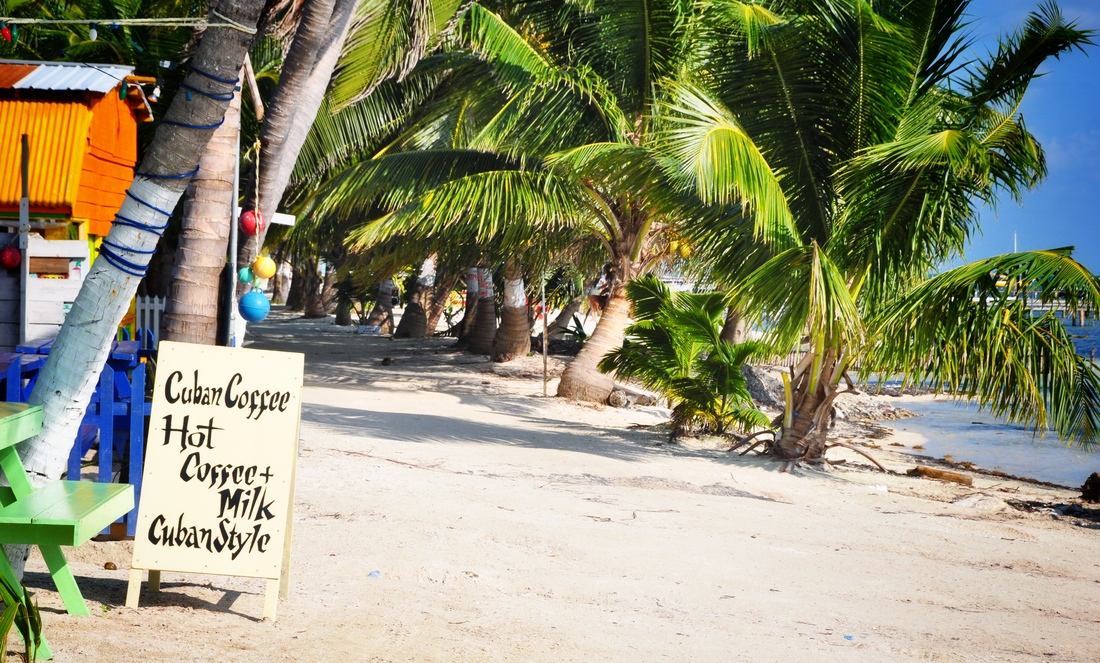 Cuban Coffee
Hot
Coffee +
Milk
Cuban Style